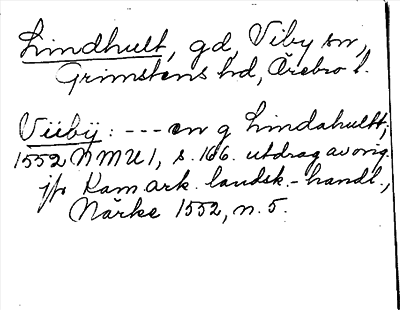 Lindhult, gd, Viby sn,
Grimstens hd, Örebro l.
Viibÿ: --- en g Lindahultt;
1552 NMU 1, s. 166. utdrag av orig.
jfr Kam. ark. landsk.-handl.,
Närke 1552, n. 5.